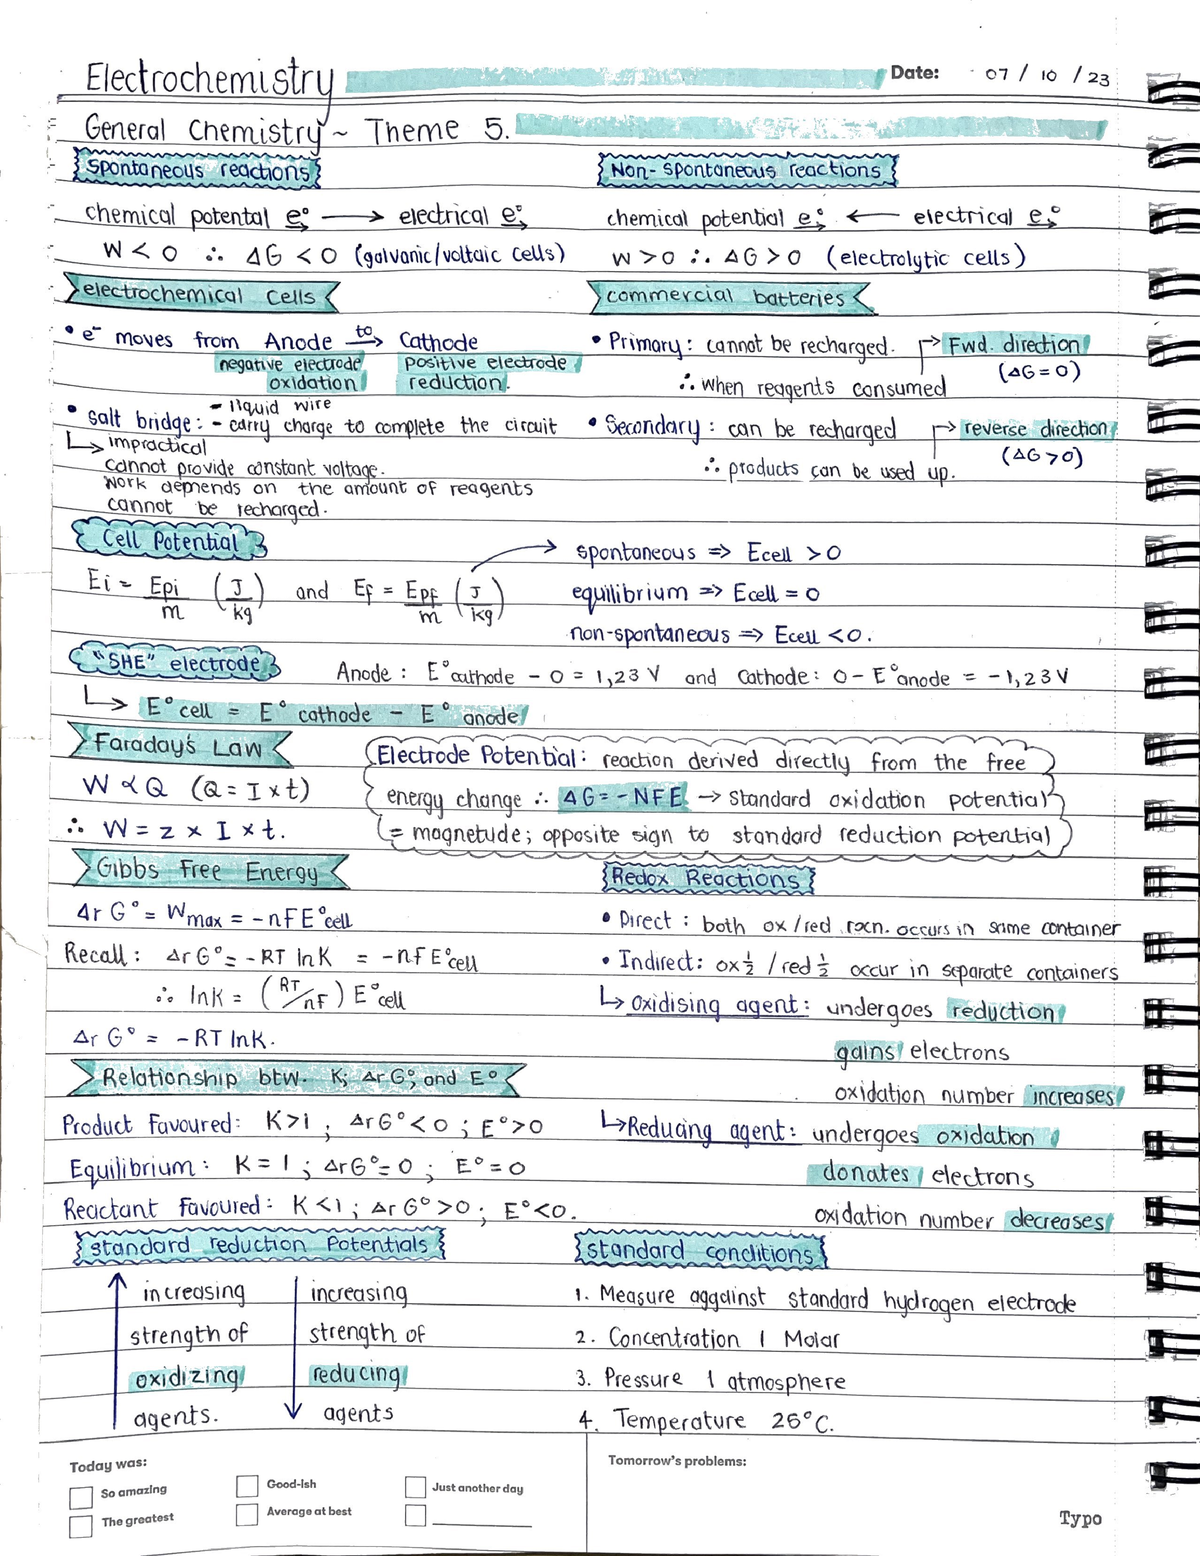 Electrochemistry Date: 07 / 10 / 23
General Chemistry ~ Theme 5.
Spontaneous reactions
chemical potental e° → electrical e°
W < 0 ∴ ΔG < 0 (galvanic/voltaic cells)
Non-spontaneous reactions
chemical potential e° ← electrical e°
W > 0 ∴ ΔG > 0 (electrolytic cells)
electrochemical cells
• e⁻ moves from Anode to→ Cathode
negative electrode positive electrode
oxidation reduction.
• salt bridge: - liquid wire
- carry charge to complete the circuit
↳ impractical
cannot provide constant voltage.
work depends on the amount of reagents
cannot be recharged.
commercial batteries
• Primary: cannot be recharged. → Fwd. direction
(ΔG = 0)
∴ when reagents consumed
• Secondary: can be recharged → reverse direction
(ΔG > 0)
∴ products can be used up.
Cell Potential
Ei = Epi/m (J/kg) and Ef = Epf/m (J/kg)
→ spontaneous ⇒ Ecell > 0
equilibrium ⇒ Ecell = 0
non-spontaneous ⇒ Ecell < 0.
"SHE" electrode Anode: E°cathode - 0 = 1,23 V and Cathode: 0 - E°anode = -1,23 V
↳ E°cell = E°cathode - E°anode
Faraday's Law
W ∝ Q (Q = I × t)
∴ W = z × I × t.
Electrode Potential: reaction derived directly from the free
energy change ∴ ΔG = -NFE. → standard oxidation potential
= magnetude; opposite sign to standard reduction potential
Gibbs Free Energy
ΔrG° = Wmax = -nFE°cell
Recall: ΔrG° = -RT lnK = -nFE°cell
∴ lnK = (RT/nF) E°cell
ΔrG° = -RT lnK.
Redox Reactions
• Direct: both ox/red rxcn. occurs in same container
• Indirect: ox½ / red½ occur in separate containers
↳ oxidising agent: undergoes reduction
gains electrons
oxidation number increases
↳ Reducing agent: undergoes oxidation
donates electrons
oxidation number decreases
Relationship btw. K; ΔrG°; and E°
Product Favoured: K>1 ; ΔrG°<0 ; E°>0
Equilibrium: K = 1 ; ΔrG°=0 ; E°=0
Reactant Favoured: K<1 ; ΔrG°>0 ; E°<0.
standard reduction Potentials
↑ increasing
strength of
oxidizing
agents.
↓ increasing
strength of
reducing
agents
standard conditions
1. Measure aggainst standard hydrogen electrode
2. Concentration 1 Molar
3. Pressure 1 atmosphere
4. Temperature 25°C.
Today was:
So amazing
The greatest
Good-ish
Average at best
Just another day
Tomorrow's problems:
Typo